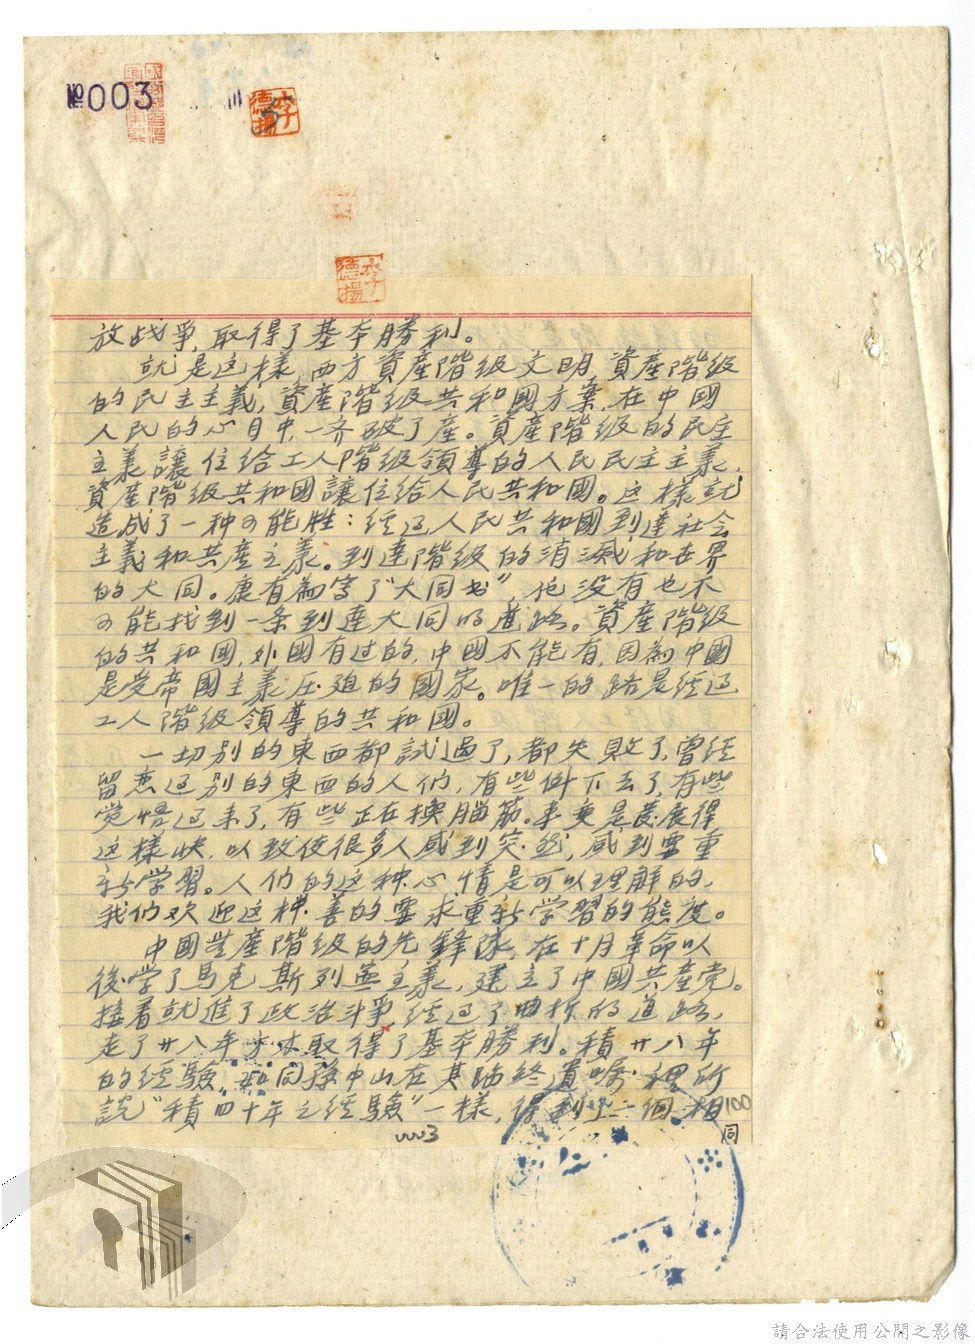 №003
李德揚
李德揚
放战爭,取得了基本勝利。
就是这樣,西方資產階級文明,資產階級
的民主主義,資產階級共和國方案,在中國
人民的心目中,一齐破了產。資產階級的民主
主義讓位给工人階級領導的人民民主主義,
資產階級共和國讓位给人民共和國。这樣就
造成了一种可能性:经过人民共和國到達社会
主義和共產主義。到達階級的消滅和世界
的大同。康有為写了“大同书”,他没有也不
可能找到一条到達大同的道路。資產階級
的共和國,外國有过的,中國不能有,因為中國
是受帝國主義压迫的國家。唯一的路是经过
工人階級領導的共和國。
一切别的東西都試過了,都失敗了,曾经
留恋过别的東西的人们,有些倒下去了,有些
觉悟过来了,有些正在換腦筋。事变是發展得
这樣快,以致使很多人感到突然,感到要重
新学習。人们的这种心情是可以理解的,
我们欢迎这种善的要求重新学習的態度。
中國無產階級的先鋒隊,在十月革命以
後学了馬克斯列寧主義,建立了中國共產党。
接着就進了政治斗爭,经过了曲折的道路,
走了廿八年方才取得了基本勝利。積廿八年
的经驗,如同孫中山在其臨終遺嘱裡所
説“積四十年之经驗”一樣,得到了一個相
同
100
0003
請合法使用公開之影像